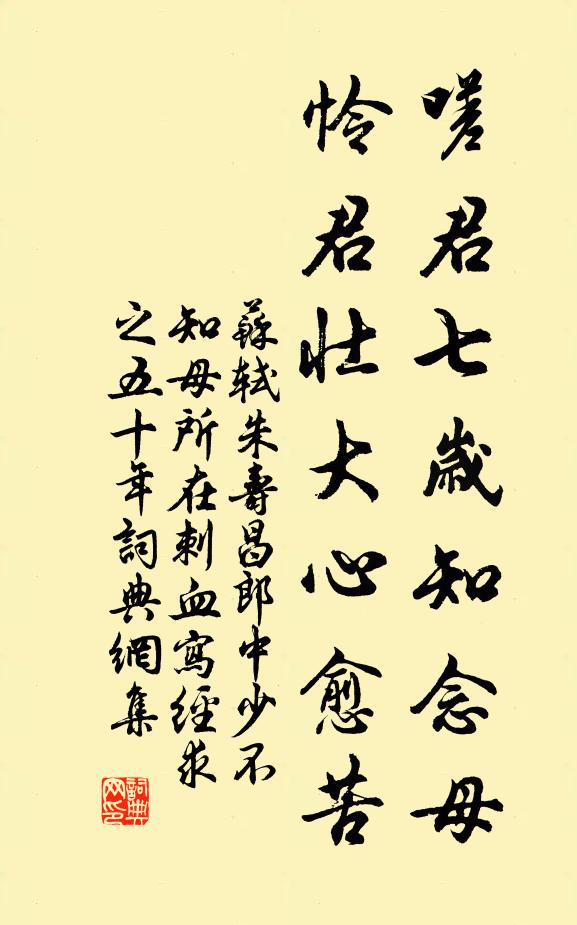 嗟君七歲知念母
怜君壯大心愈苦
蘇軾朱壽昌郎中少不
知母所在刺血寫經求
之五十年詞典網集
詞典
网印